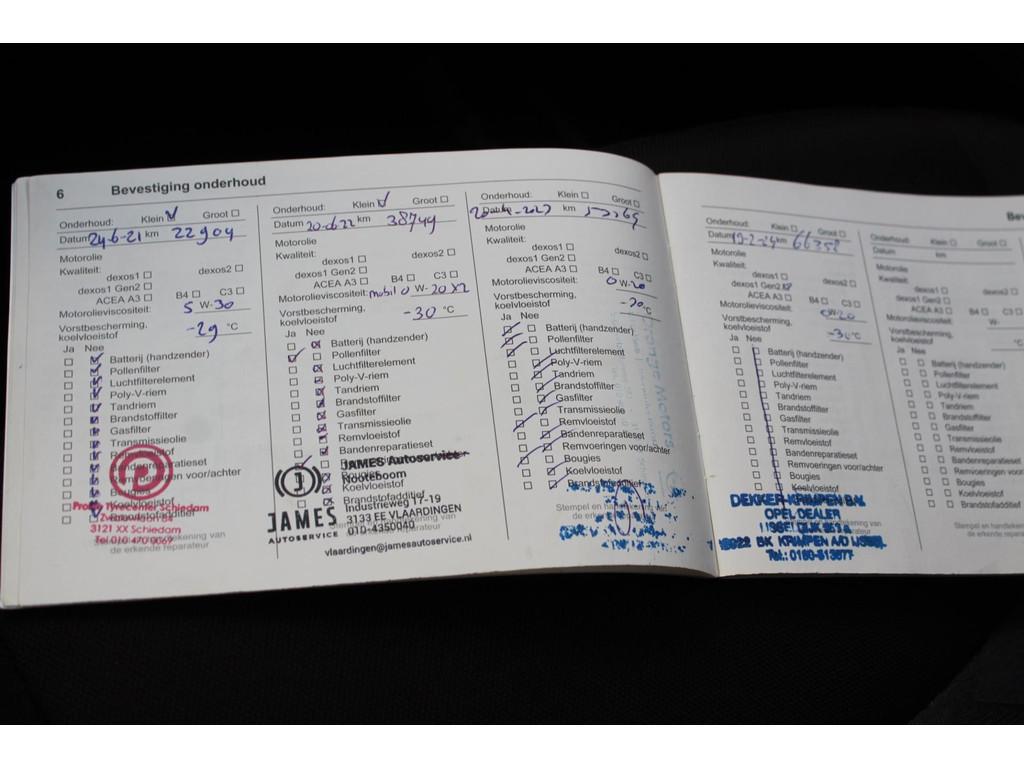 6 Bevestiging onderhoud
Onderhoud: Klein Groot
Datum 24-6-21 km 22904
Motorolie
Kwaliteit:
dexos1
dexos2
dexos1 Gen2
ACEA A3 B4 C3
Motorolieviscositeit: 5 W-30
Vorstbescherming,
koelvloeistof -29 °C
Ja Nee
Batterij (handzender)
Pollenfilter
Luchtfilterelement
Poly-V-riem
Tandriem
Brandstoffilter
Gasfilter
Transmissieolie
Remvloeistof
Bandenreparatieset
Remvoeringen voor/achter
Bougies
Koelvloeistof
Tyrecenter Schiedam
3121 XX Schiedam
Tel.010 470 9067
de erkende reparateur
Onderhoud: Klein Groot
Datum 20-06-22 km 38749
Motorolie
Kwaliteit:
dexos1
dexos2
dexos1 Gen2
ACEA A3 B4 C3
Motorolieviscositeit: mobil 0 W-20 X2
Vorstbescherming,
koelvloeistof -30 °C
Ja Nee
Batterij (handzender)
Pollenfilter
Luchtfilterelement
Poly-V-riem
Tandriem
Brandstoffilter
Gasfilter
Transmissieolie
Remvloeistof
Bandenreparatieset
JAMES Autoservice
Nooteboom
Bougies
Koelvloeistof
Brandstofadditief
Industrieweg 17-19
3133 EE VLAARDINGEN
010-4350040
JAMES
AUTOSERVICE
vlaardingen@jamesautoservice.nl
Onderhoud: Klein Groot
km
Motorolie
Kwaliteit:
dexos1
dexos2
dexos1 Gen2
ACEA A3 B4 C3
Motorolieviscositeit: 0 W-20
Vorstbescherming,
koelvloeistof °C
Ja Nee
Batterij (handzender)
Pollenfilter
Luchtfilterelement
Poly-V-riem
Tandriem
Brandstoffilter
Gasfilter
Transmissieolie
Remvloeistof
Bandenreparatieset
Remvoeringen voor/achter
Bougies
Koelvloeistof
Brandstofadditief
Onderhoud: Klein Groot
Datum km
Motorolie
Kwaliteit:
dexos1
dexos2
dexos1 Gen2
ACEA A3 B4 C3
Motorolieviscositeit: 0W-20
Vorstbescherming,
koelvloeistof °C
Ja Nee
Batterij (handzender)
Pollenfilter
Luchtfilterelement
Poly-V-riem
Tandriem
Brandstoffilter
Gasfilter
Transmissieolie
Remvloeistof
Bandenreparatieset
Remvoeringen voor/achter
Bougies
Koelvloeistof
DEKKER-KRIMPEN B.V.
OPEL DEALER
BK KRIMPEN A/D IJSSEL
Tel.: 0180-513877
Onderhoud: Klein Groot
Datum km
Motorolie
Kwaliteit:
dexos1
dexos2
dexos1 Gen2
ACEA A3 B4 C3
Motorolieviscositeit: W-
Vorstbescherming,
koelvloeistof °C
Ja Nee
Batterij (handzender)
Pollenfilter
Luchtfilterelement
Poly-V-riem
Tandriem
Brandstoffilter
Gasfilter
Transmissieolie
Remvloeistof
Bandenreparatieset
Remvoeringen voor/achter
Bougies
Koelvloeistof
Brandstofadditief
Stempel en
de erkende reparateur